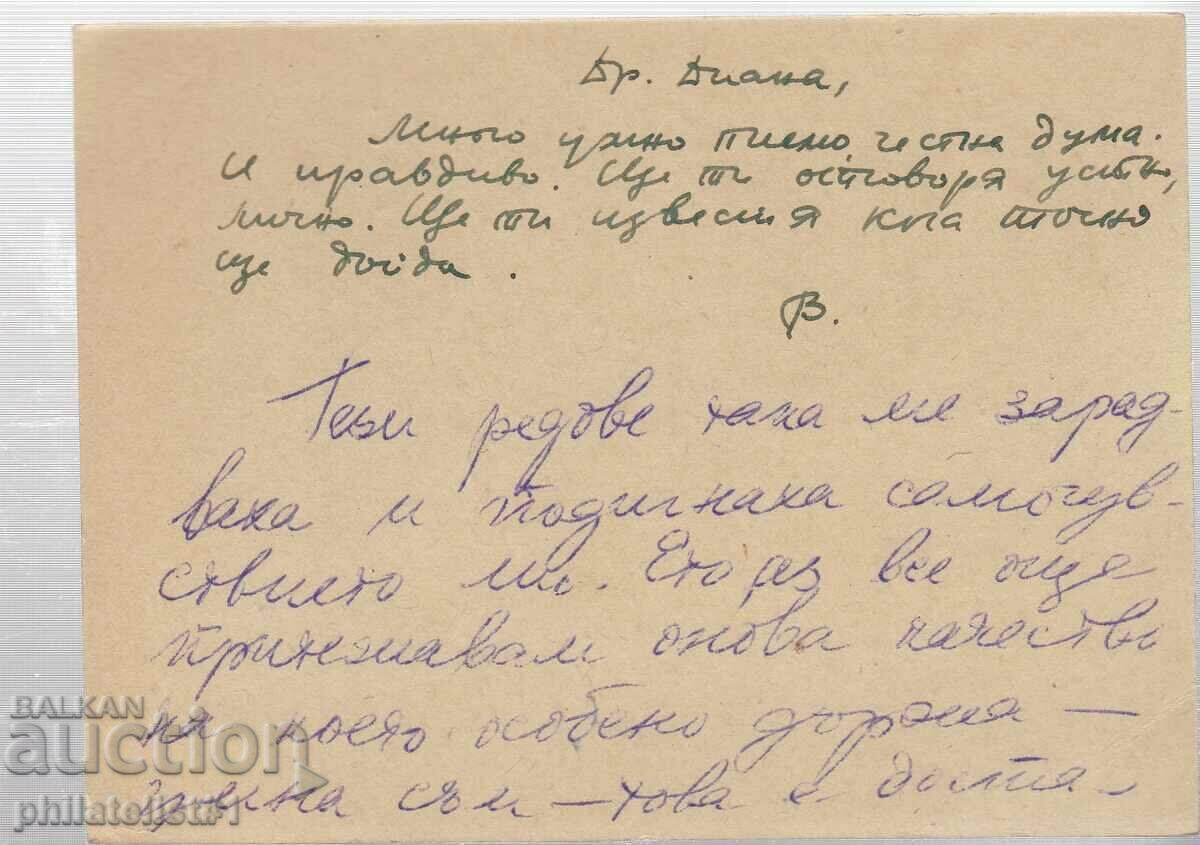 Др. Диана,
Много умно писмо, честна дума.
И правдиво. Ще ти отговоря устно,
лично. Ще ти известя кога точно
ще дойда.
В.
Тези редове така ме зарад-
ваха и подигнаха самочув-
ствието ми. Ето аз все още
притежавам онова качество
на което особено държа –
умна съм – това е доста-
BALKAN
auction
philatelist#1